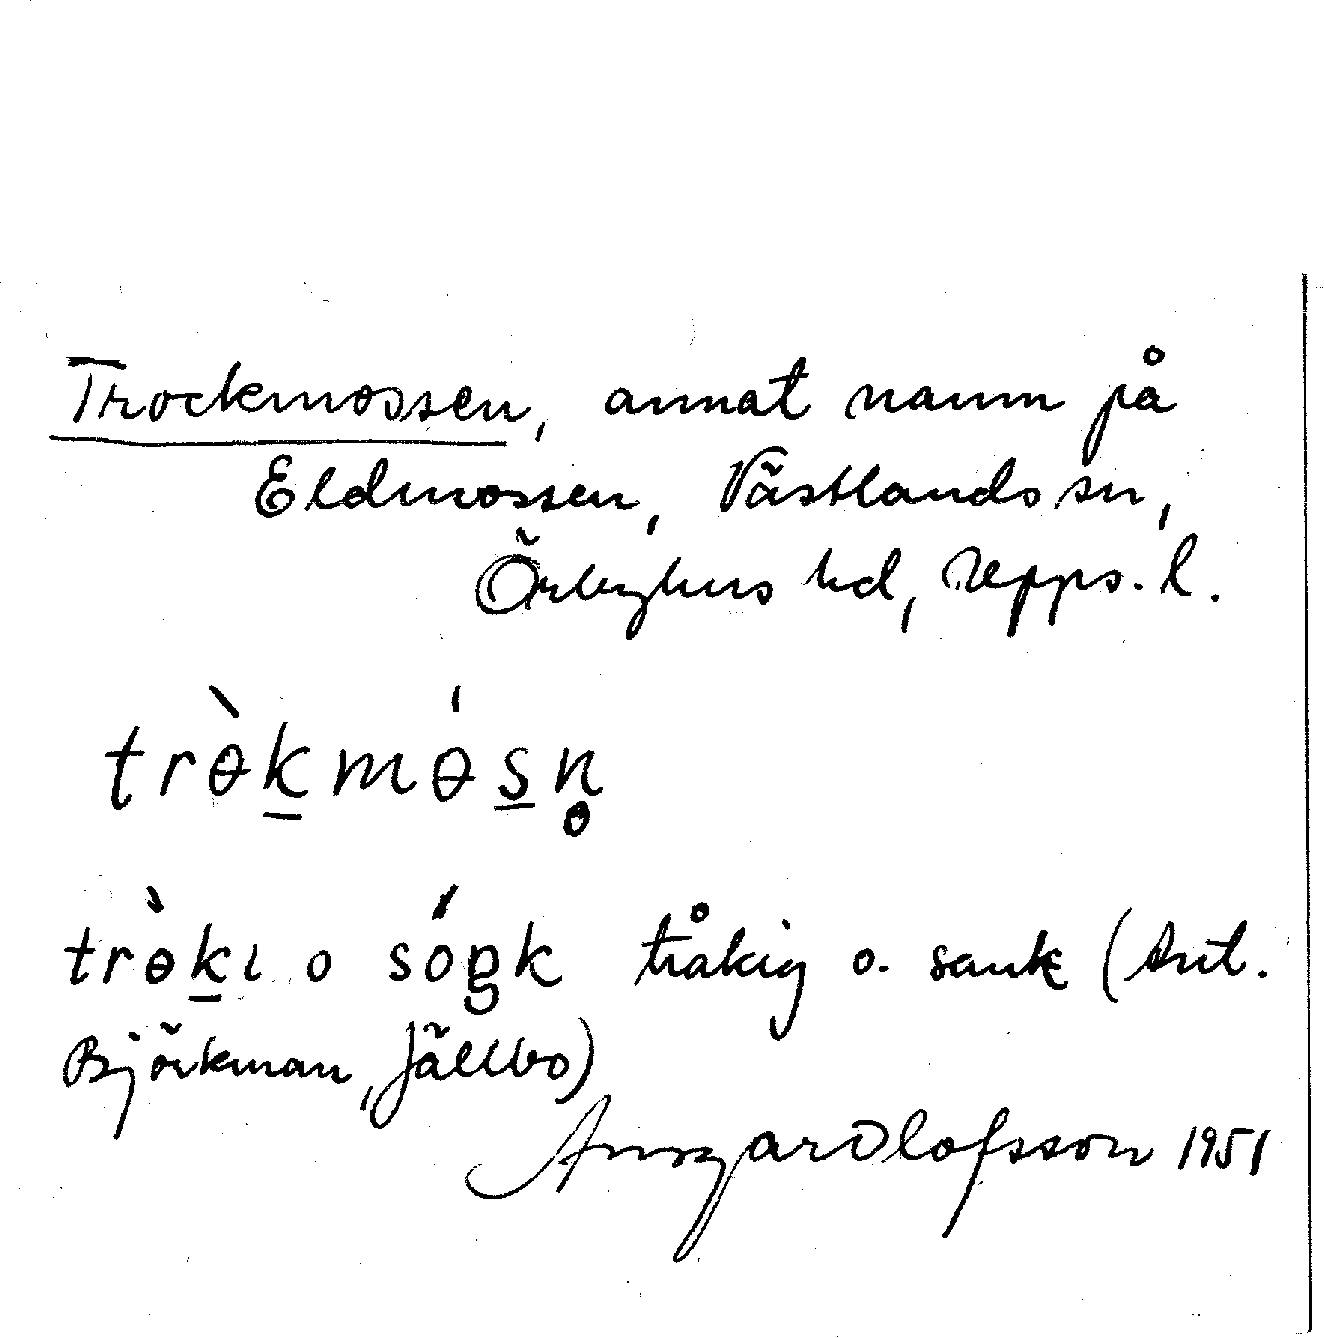 Trockmossen, annat namn på
Eldmossen, Västlands sn,
Örbyhus hd, Upps. l.
trɵ̀kmɵ́sn̥
trɵ̀kɩ o sóŋk tråkig o. sank (Ant.
Björkman, Jällbo)
Ansgar Olofsson 1951